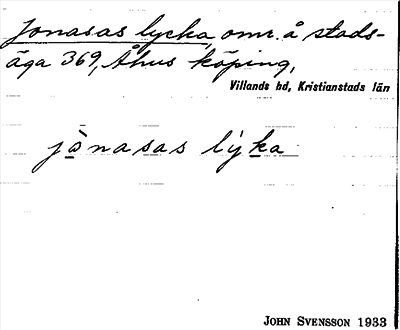 Jonasas lycka, omr. å stads-
äga 369, Åhus köping,
Villands hd, Kristianstads län
jònasas lyka
JOHN SVENSSON 1933